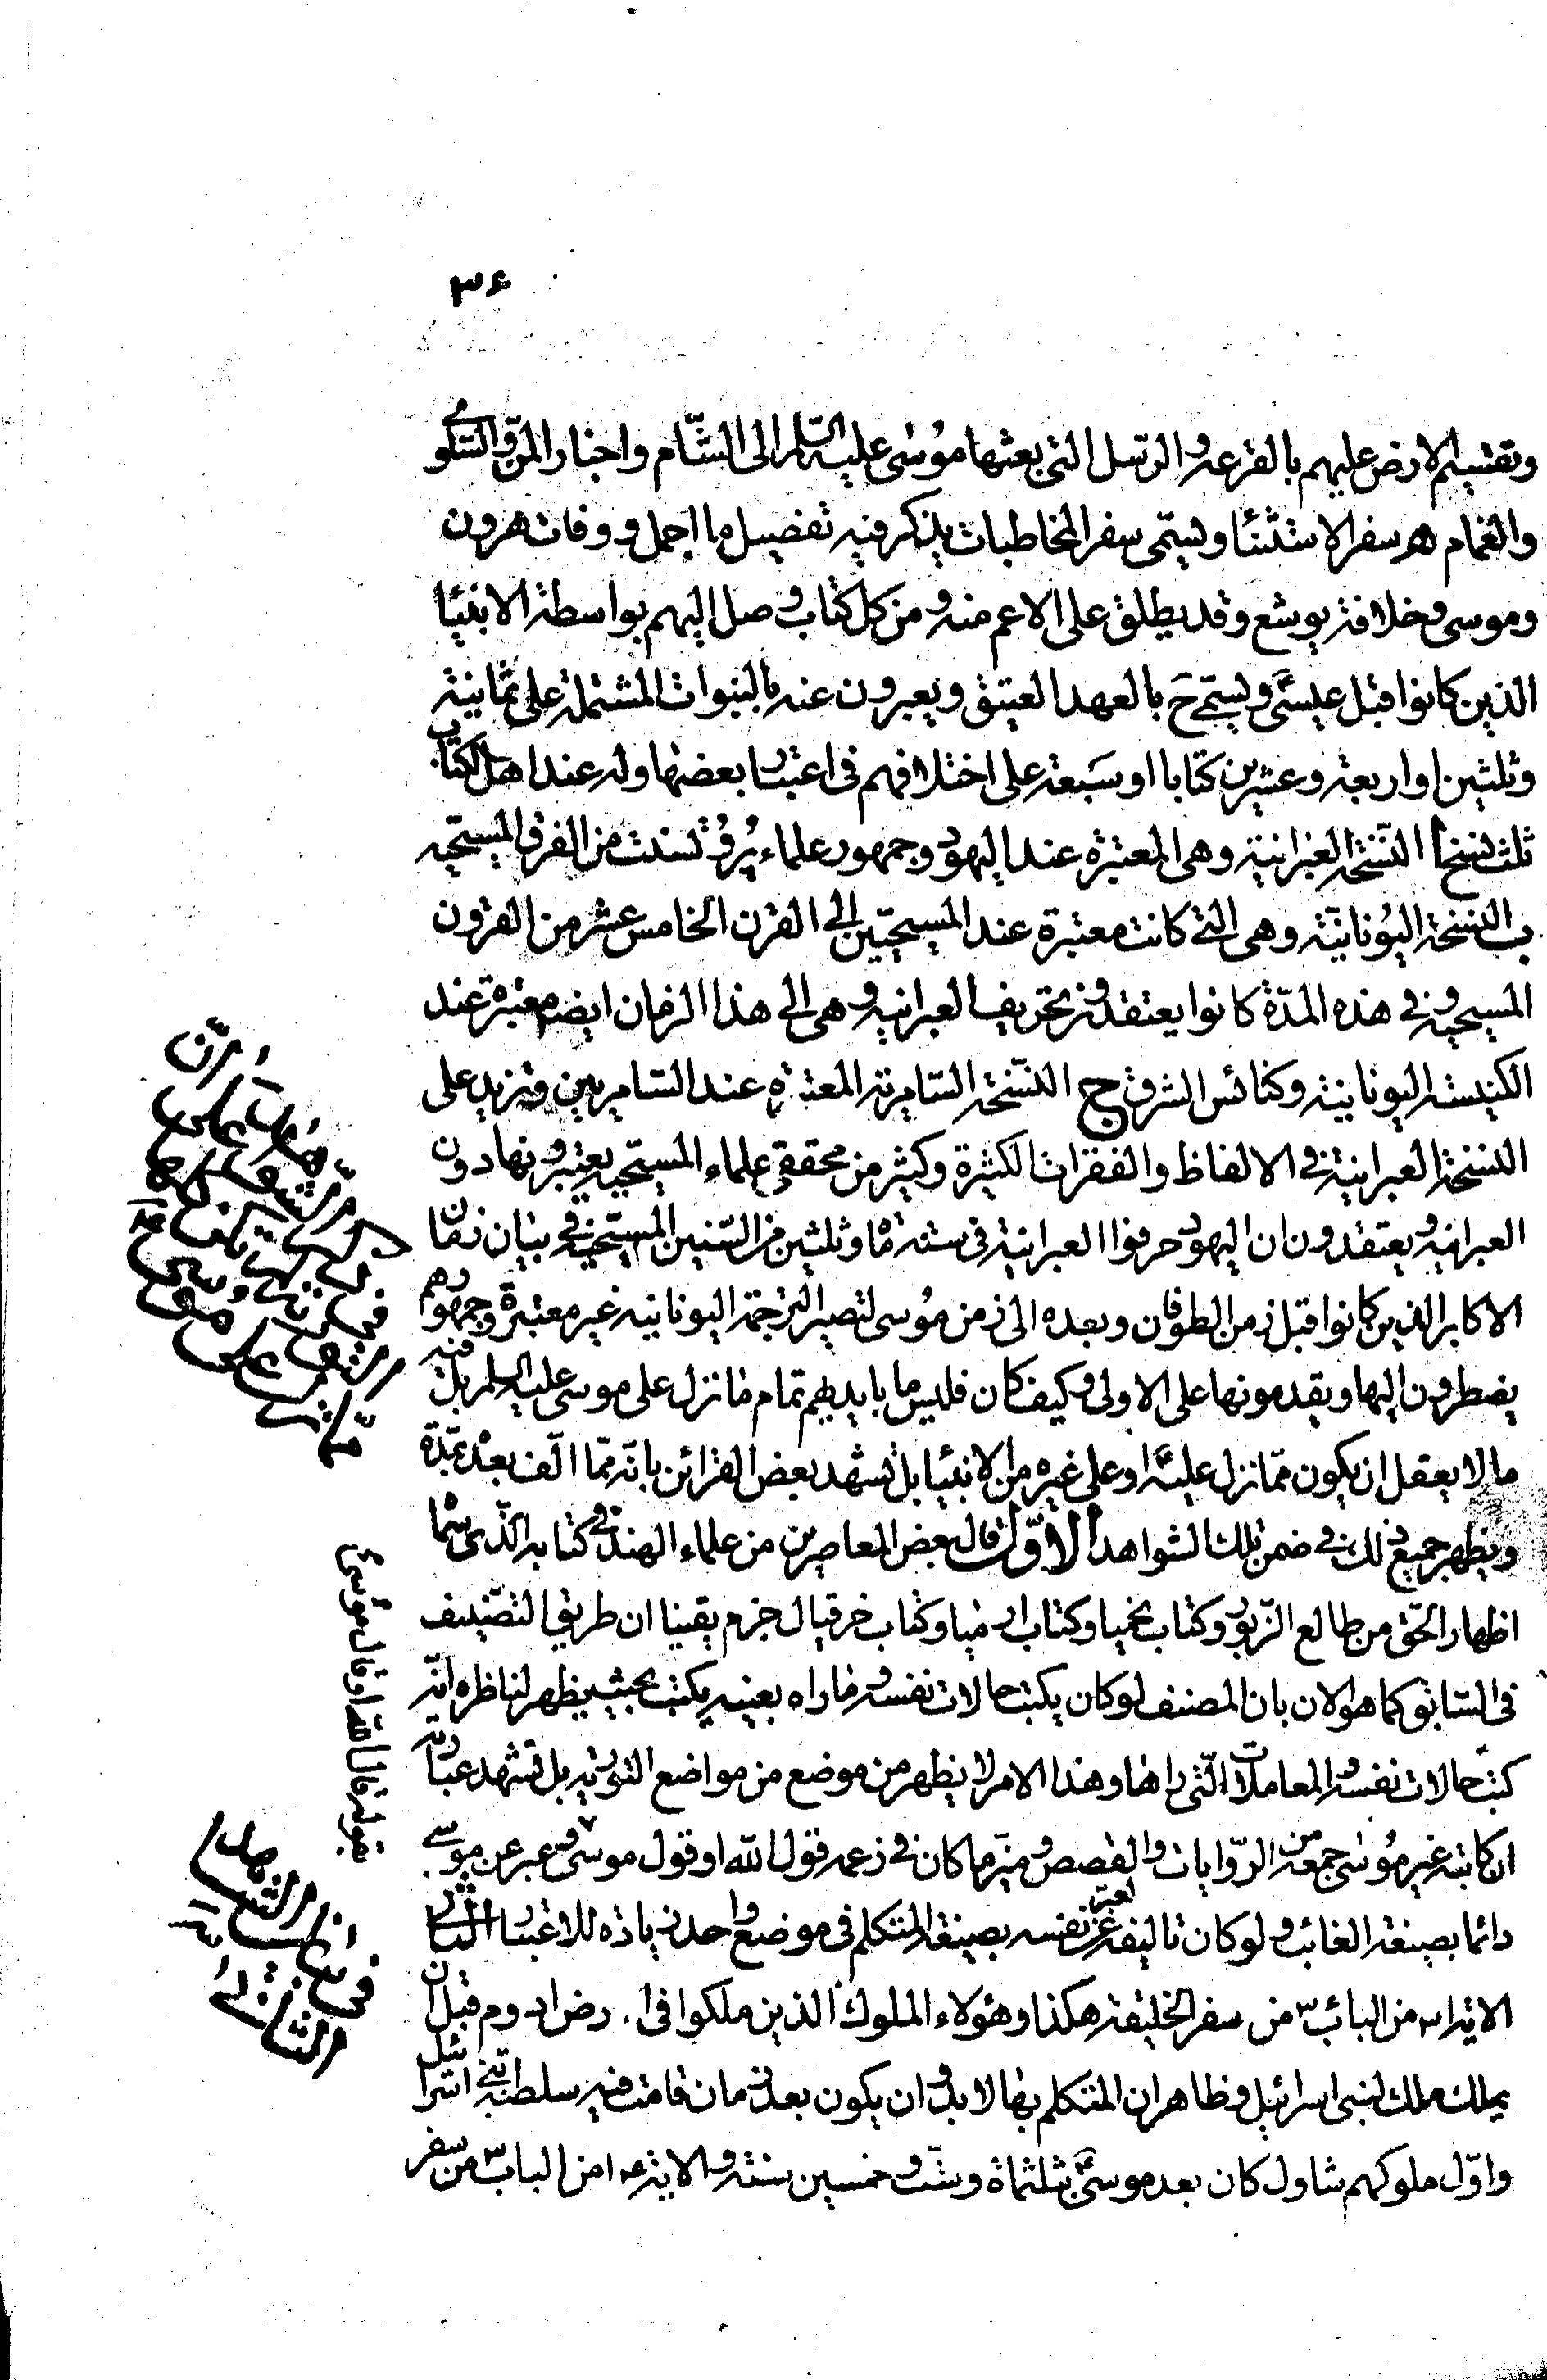 ٣٤
وتقسيم الارض عليهم بالقرعة والرسل التى بعثها موسى عليه السلم الى الشام واخبار المن والسلوى
والغمام هر سفر الاستثنا ويسمى سفر المخاطبات يذكر فيه تفصيل ما اجمل ووفات هرون
وموسى وخلافة يوشع وقد يطلق على الاعم منه ومن كل كتاب وصل اليهم بواسطة الانبيا
الذين كانوا قبل عيسى ويسمى ح بالعهد العتيق ويعبرون عنه بالنبوات المشتملة على ثمانية
وثلثين او اربعة وعشرين كتابا او سبعة على اختلافهم فى اعتبار بعضها وله عند اهل الكتاب
ثلث نسخ أ النسخة العبرانية وهى المعتبرة عند اليهود وجمهور علماء پروتستنت من الفرق المسيحيه
ب النسخة اليونانية وهى التى كانت معتبرة عند المسيحيين الى القرن الخامس عشر من القرون
المسيحية وفى هذه المدة كانوا يعتقدون تحريف العبرانية وهى الى هذا الزمان ايضا معتبرة عند
الكنيسة اليونانية وكنائس الشرق ج النسخة السامرية المعتبرة عند السامريين وتزيد على
النسخة العبرانية فى الالفاظ والفقرات الكثيرة وكثير من محققى علماء المسيحية يعتبرونها دون
العبرانية ويعتقدون ان اليهود حرفوا العبرانية فى سنة مأة وثلثين من السنين المسيحية فى بيان زمان
الاكابر الذين كانوا قبل زمن الطوفان وبعده الى زمن موسى لتصير الترجمة اليونانية غير معتبرة وجمهورهم
يضطرون اليها ويقدمونها على الاولى وكيف كان فليس ما بايديهم تمام ما نزل على موسى عليه السلم بل فيه
ما لا يعقل ان يكون مما نزل عليه او على غيره من الانبيا بل تشهد بعض القرائن بانه مما الف بعده بمدة
ويظهر جميع ذلك فى ضمن تلك الشواهد الاول قال بعض المعاصرين من علماء الهند فى كتابه الذى سماه
اظهار الحق من طالع الزبور وكتاب نحميا وكتاب ارميا وكتاب حزقيال جزم يقينا ان طريق التصنيف
فى السابق كما هو الان بان المصنف لو كان يكتب حالات نفسه وما راه بعينه يكتب بحيث يظهر لناظره انه
كتب حالات نفسه والمعاملات التى راها وهذا الامر لا يظهر من موضع من مواضع التورية بل تشهد عبارته
ان كاتبه غير موسى جمعه من الروايات والقصص وميز ما كان فى زعمه قول الله او قول موسى وعبر عن موسى
دائما بصيغة الغائب ولو كان تاليفه لعبر عن نفسه بصيغة المتكلم فى موضع واحد زيادة للاعتبار الثانى
الاية ٣١ من الباب ٣٦ من سفر الخليقة هكذا وهؤلاء الملوك الذين ملكوا فى ارض ادوم قبل ان
يملك ملك لبنى اسرائيل وظاهر ان المتكلم بها لا بد وان يكون بعد زمان قامت فيه سلطنة بنى اسرائيل
واول ملوكهم شاول كان بعد موسى بثلثمأة وست وخمسين سنة والاية ١٤ من الباب ٣ من سفر
بقوله قال الله او قال موسى